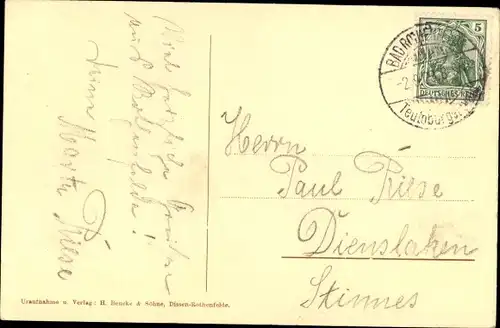 Viele herzliche Grüße
aus Rothenfelde!
Deine Martha Riese
BAD ROTHENFELDE
Teutoburger
5
DEUTSCHES REICH
Herrn
Paul Riese
Dinslaken
Stinnes
Uraufnahme u. Verlag: H. Beucke & Söhne, Dissen-Rothenfelde.